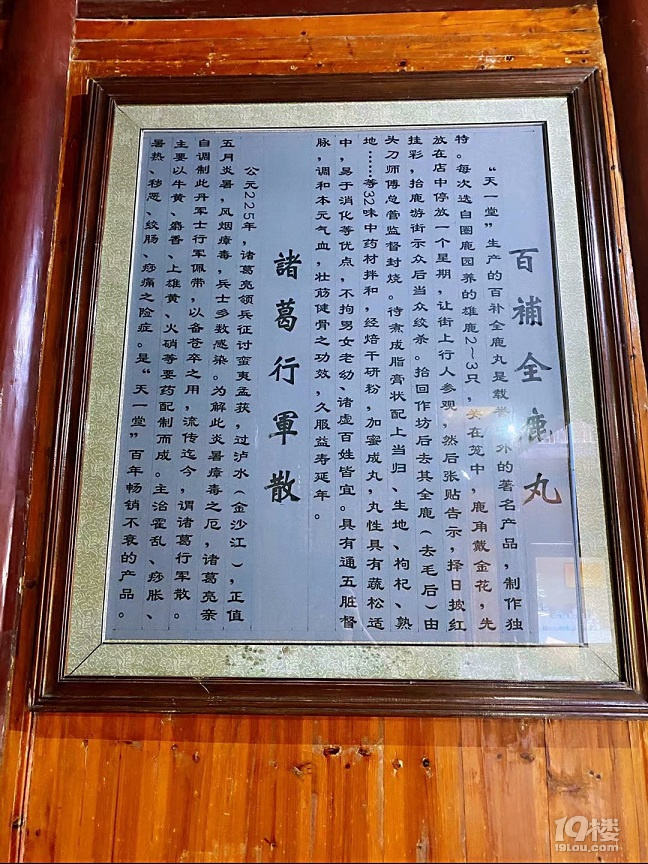 百補全鹿丸
“天一堂”生产的百补全鹿丸是载 外的著名产品，制作独
特。每次选自圈鹿园养的雄鹿2～3只，关在笼中，鹿角戴金花，先
放在店中停放一个星期，让街上行人参观，然后张贴告示，择日披红
挂彩，抬鹿游街示众后当众绞杀。抬回作坊后去其全鹿（去毛后）由
头刀师傅总管监督封烧。待煮成脂膏状配上当归、生地、枸杞、熟
地……等32味中药材拌和，经焙干研粉，加蜜成丸，丸性具有蔬松适
中，易于消化等优点，不拘男女老幼、诸虚百姓皆宜。具有通五脏督
脉，调和本元气血，壮筋健骨之功效，久服益寿延年。
諸葛行軍散
公元225年，诸葛亮领兵征讨蛮夷孟获，过泸水（金沙江），正值
五月炎暑，风烟瘴毒，兵士多数感染。为解此炎暑瘴毒之厄，诸葛亮亲
自调制此丹军士行军佩带，以备苍卒之用，流传迄今，谓诸葛行军散。
主要以牛黄、麝香、上雄黄、火硝等要药配制而成。主治霍乱、痧胀、
暑热、秽恶、绞肠、痧痛之险症。是“天一堂”百年畅销不衰的产品。
19楼
19lou.com